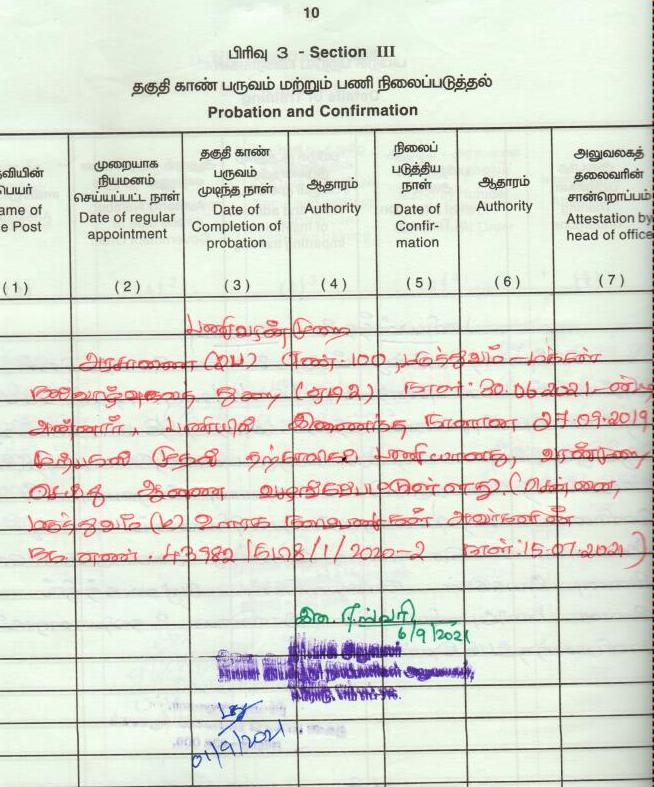 10
பிரிவு 3 - Section III
தகுதி காண் பருவம் மற்றும் பணி நிலைப்படுத்தல்
Probation and Confirmation
தவியின் பெயர் Name of the Post
முறையாக நியமனம் செய்யப்பட்ட நாள் Date of regular appointment
தகுதி காண் பருவம் முடிந்த நாள் Date of Completion of probation
ஆதாரம் Authority
நிலைப் படுத்திய நாள் Date of Confir- mation
ஆதாரம் Authority
அலுவலகத் தலைவரின் சான்றொப்பம் Attestation by head of office
(1) (2) (3) (4) (5) (6) (7)
பணிவரன்முறை
அரசாணை (2ப) எண்.100, மருத்துவம் - மக்கள்
நல்வாழ்வுத்துறை (அ12) நாள்: 30.06.2021-ன்படி
அன்னார், பணியில் இணைந்த நாளான 27.09.2019
முற்பகல் முதல் தற்காலிக பணியானது, வரன்முறை
செய்து ஆணை வழங்கப்பட்டுள்ளது. (சென்னை,
மருத்துவம் (ம) ஊரக நலப்பணிகள் அவர்களின்
ந.க.எண். 43982 /1/2020-2 நாள்: 15.07.2021)
6/9/2021
01/9/2021